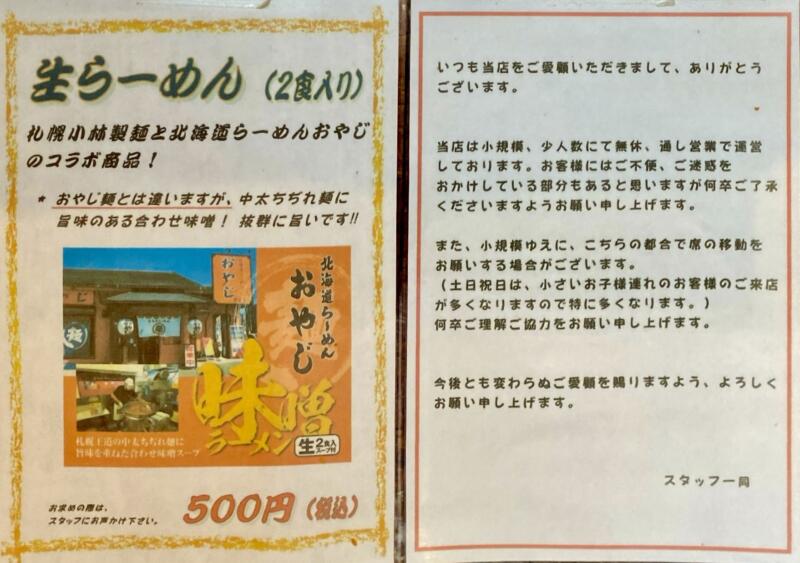 生らーめん（2食入り）
札幌小林製麺と北海道らーめんおやじ
のコラボ商品！
* おやじ麺とは違いますが、中太ちぢれ麺に
旨味のある合わせ味噌！ 抜群に旨いです!!
おやじ
北海道らーめん
おやじ
味噌
ラーメン
生 2食入
スープ付
札幌王道の中太ちぢれ麺に
旨味を重ねた合わせ味噌スープ
お求めの際は、
スタッフにお声かけ下さい。
500円（税込）
いつも当店をご愛顧いただきまして、ありがとう
ございます。
当店は小規模、少人数にて無休、通し営業で運営
しております。お客様にはご不便、ご迷惑を
おかけしている部分もあると思いますが何卒ご了承
くださいますようお願い申し上げます。
また、小規模ゆえに、こちらの都合で席の移動を
お願いする場合がございます。
（土日祝日は、小さいお子様連れのお客様のご来店
が多くなりますので特に多くなります。）
何卒ご理解ご協力をお願い申し上げます。
今後とも変わらぬご愛顧を賜りますよう、よろしく
お願い申し上げます。
スタッフ一同